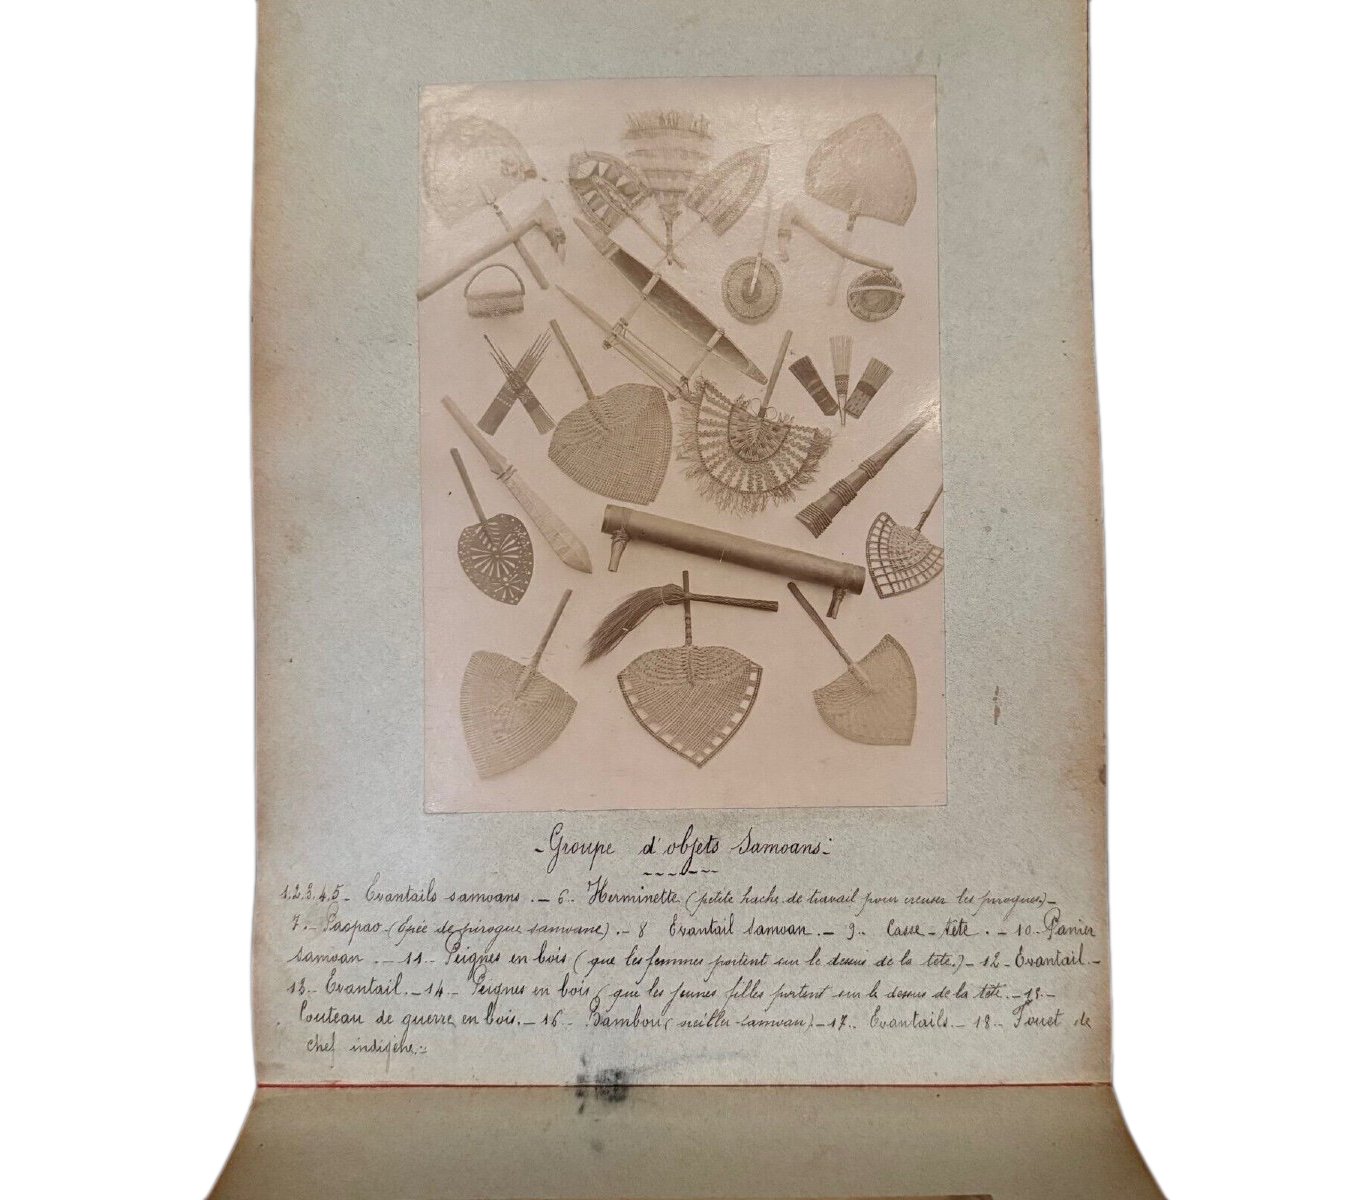 - Groupe d'objets Samoans -
1.2.3.4.5 - Evantails samoans. - 6. Herminette (petite hache de travail pour creuser les pirogues) -
7. - Paopao (Espèce de pirogue samoane). - 8 Evantail Samoan. - 9. Casse-tête. - 10. Panier
Samoan. - 11. - Peignes en bois (que les femmes portent sur le dessus de la tête.) - 12 - Evantail. -
13. - Evantail. - 14. - Peignes en bois (que les jeunes filles portent sur le dessus de la tête. - 15. -
Couteau de guerre en bois. - 16. Bambou (oreiller samoan) - 17. Evantails. - 18 - Fouet de
chef indigène. -